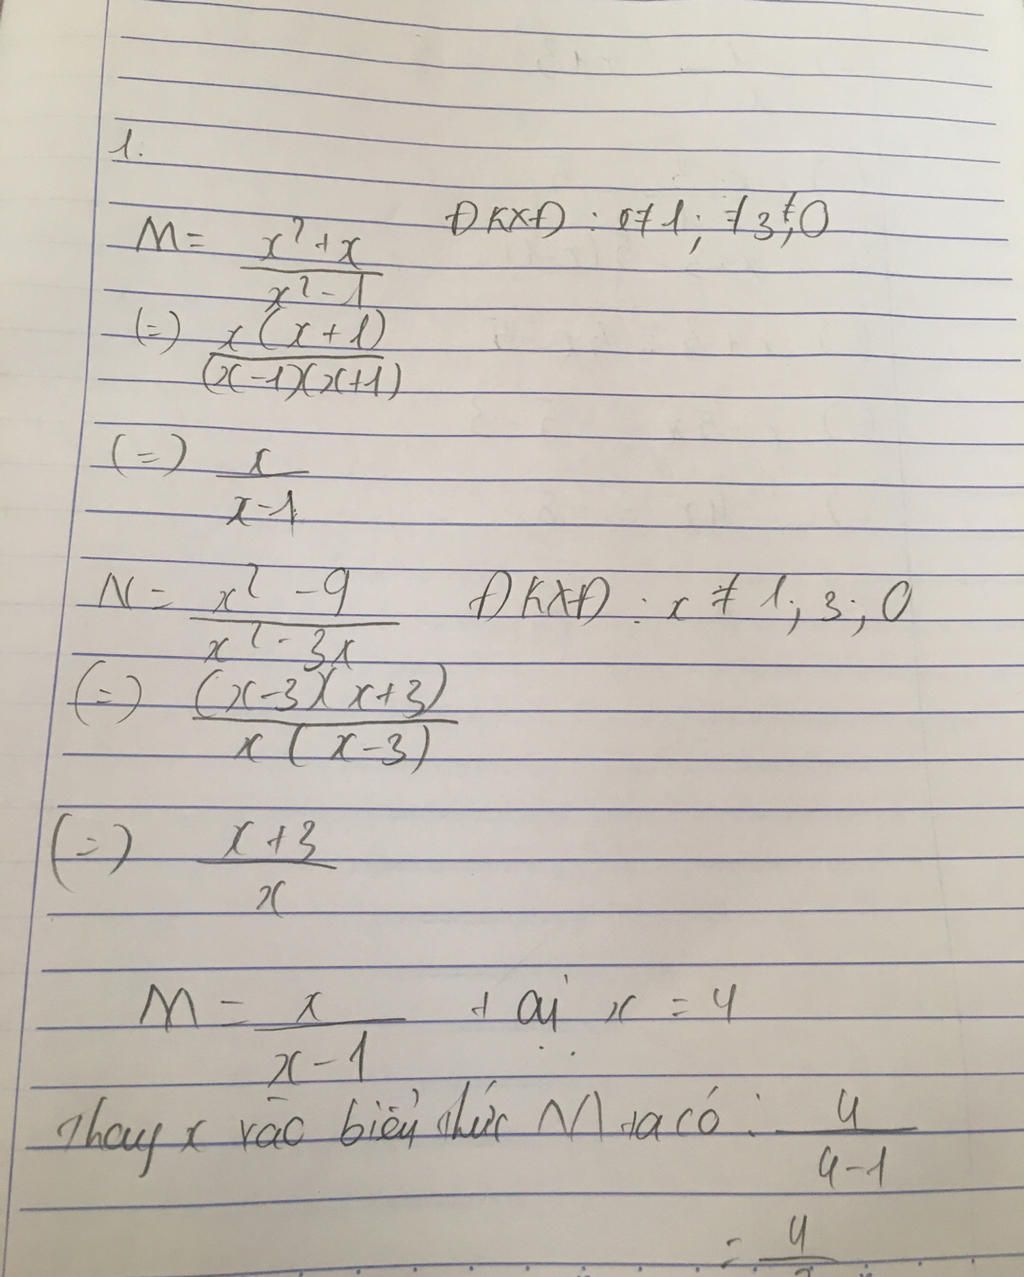 1.
M = \frac{x² + x}{x² - 1} ĐKXĐ : ≠ 1; ≠ 3; ≠ 0
(=) \frac{x(x+1)}{(x-1)(x+1)}
(=) \frac{x}{x-1}
N = \frac{x² - 9}{x² - 3x} ĐKXĐ : x ≠ 1; 3; 0
(=) \frac{(x-3)(x+3)}{x(x-3)}
(=) \frac{x+3}{x}
M = \frac{x}{x-1} tại x = 4
Thay x vào biểu thức M ta có : \frac{4}{4-1}
= \frac{4}{}